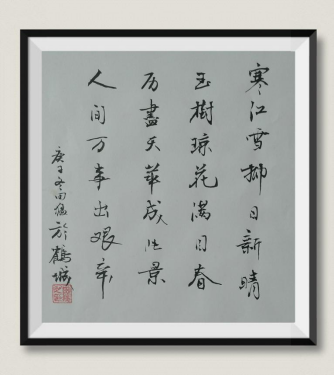 寒江雪柳日新晴
玉樹琼花满目春
历盡天華成此景
人间万事出艰辛
庚子冬田猛於鶴城